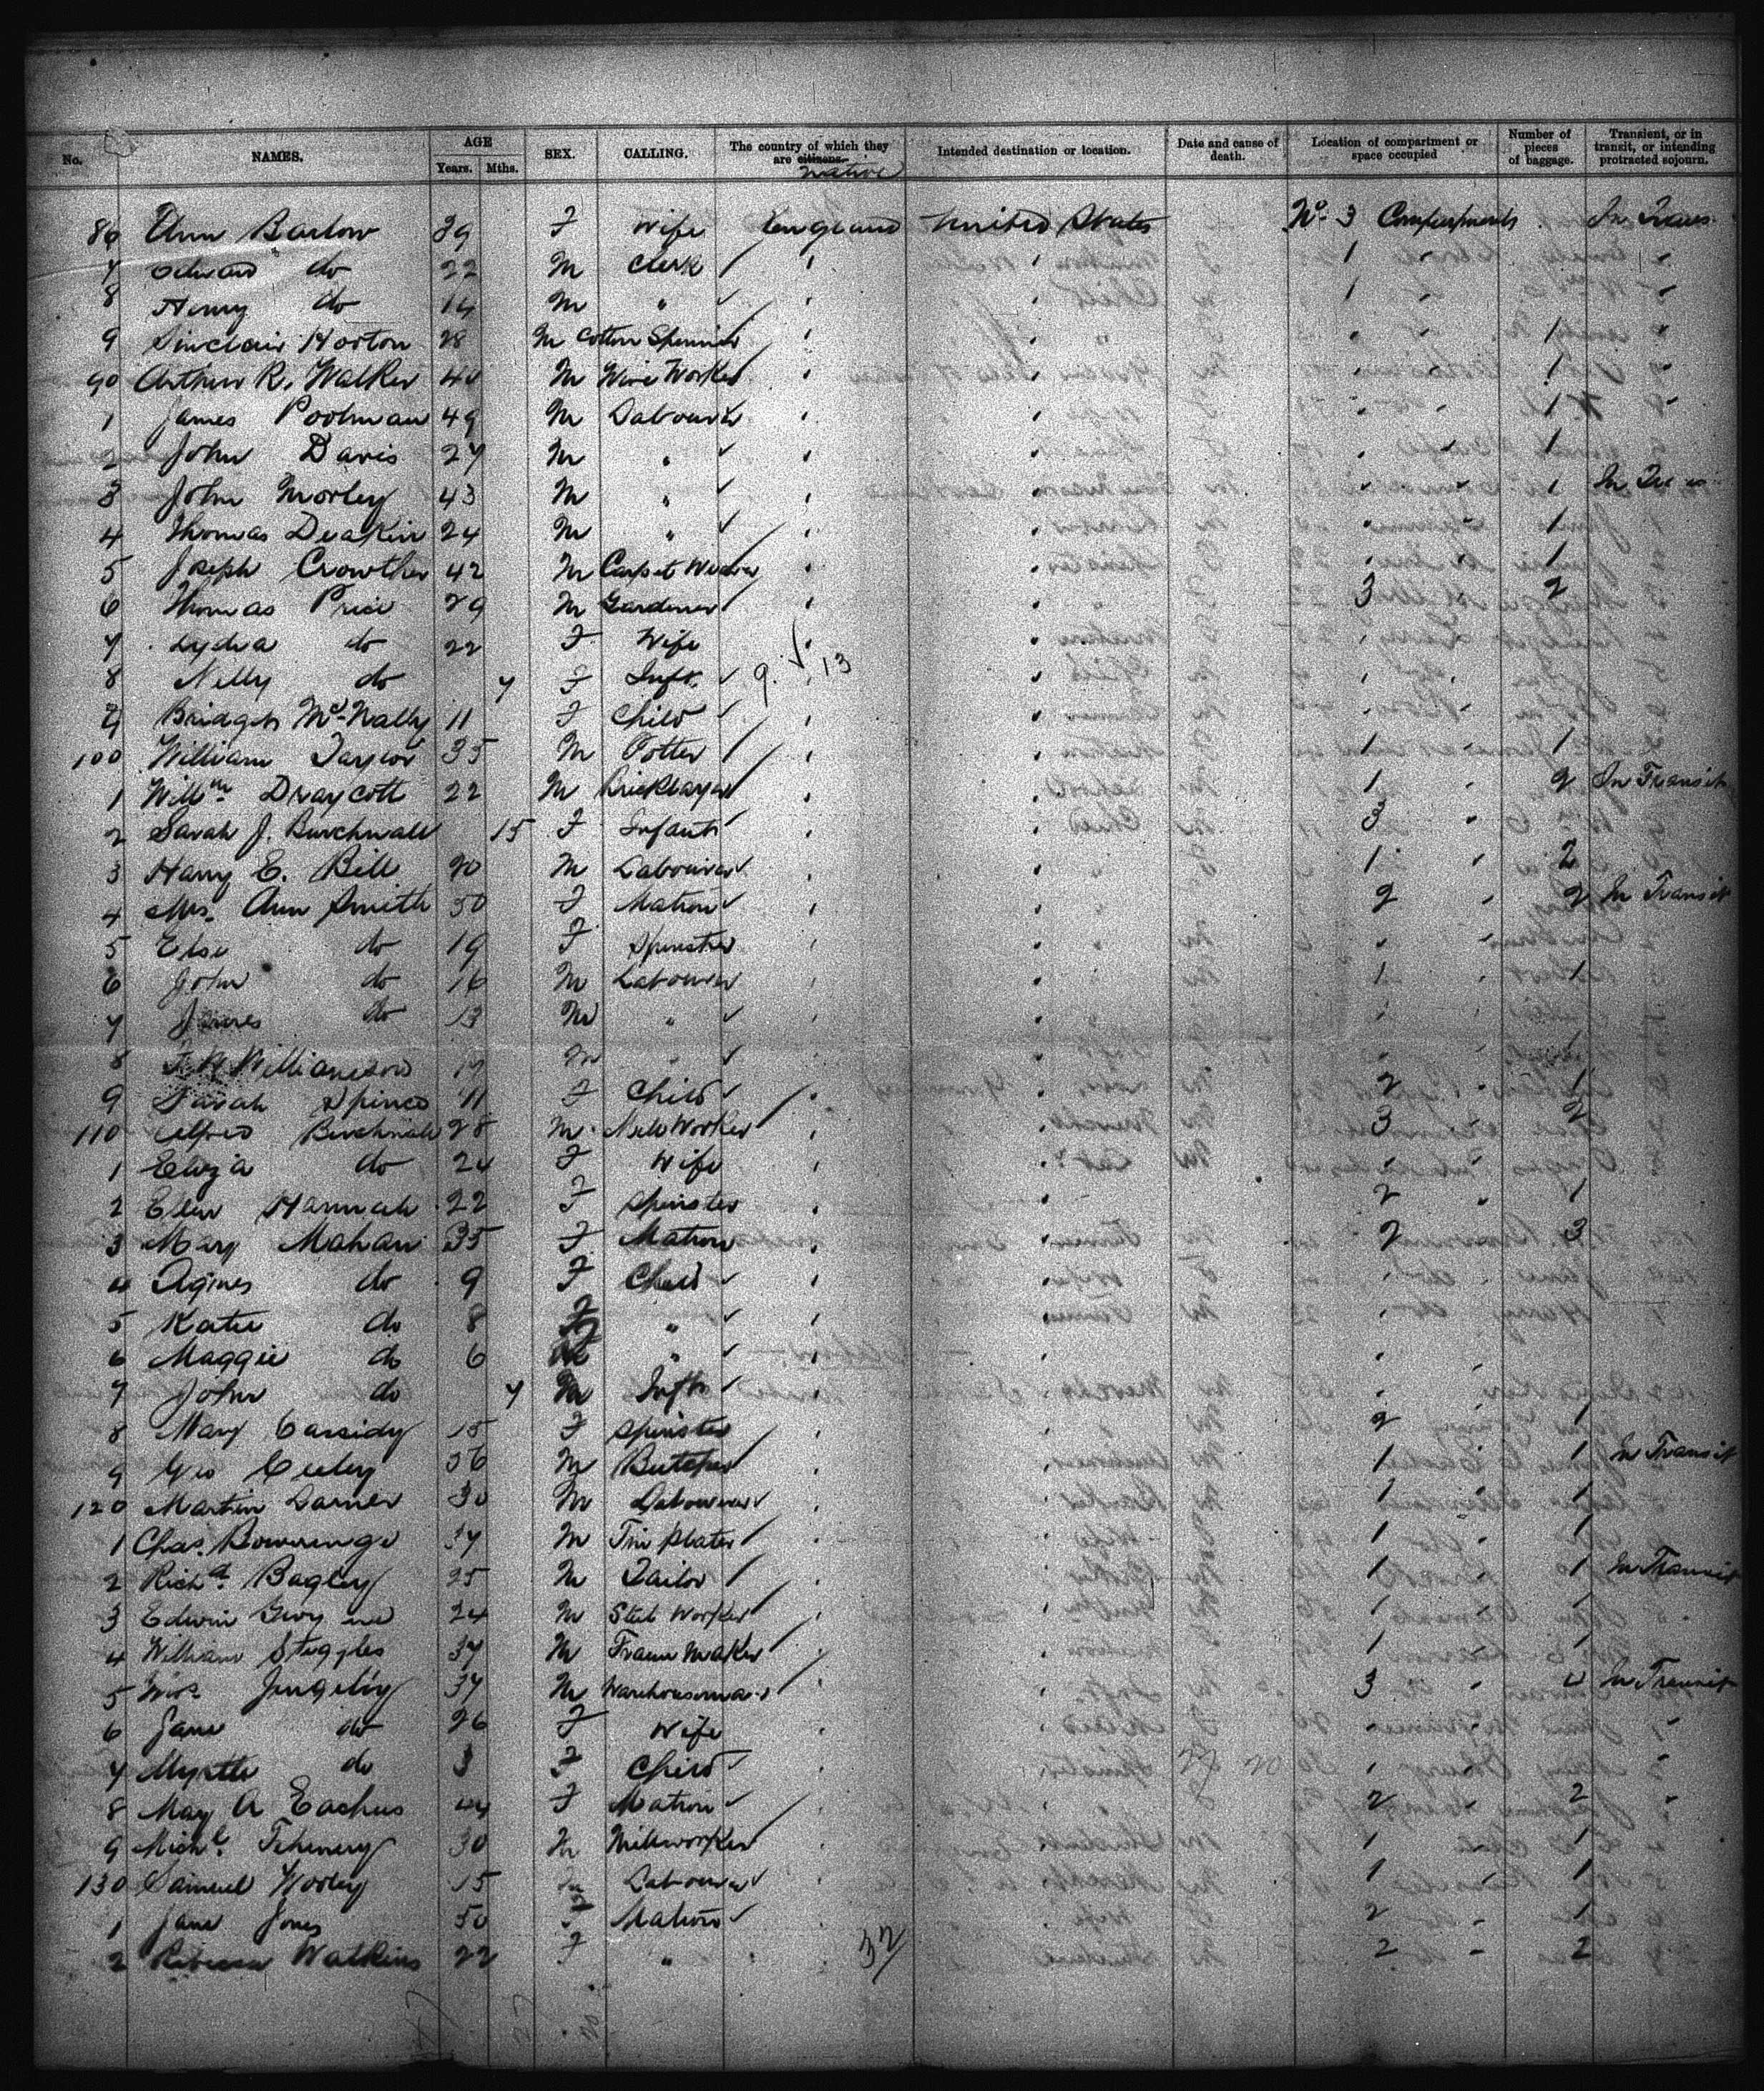 No. NAMES. AGE Years. Mths. SEX. CALLING. The country of which they are citizens. native Intended destination or location. Date and cause of death. Location of compartment or space occupied Number of pieces of baggage. Transient, or in transit, or intending protracted sojourn.
86 Ann Barlow 39 F Wife England United States No. 3 Compartments In Trans.
7 Edward do 22 M Clerk 1
8 Henry do 14 M " 1
9 Sinclair Horton 28 M Cotton Spinner 1
90 Arthur R. Walker 40 M Wire Worker 1
1 James Poolman 49 M Labourer 1
2 John Davis 27 M " 1
3 John Morley 43 M " 1
4 Thomas Deakin 24 M " 1
5 Joseph Crowther 42 M Carpet Weaver 1
6 Thomas Price 29 M Gardener 3 2
7 Lydia do 22 F Wife
8 Nelly do 7 F Inft. 9 13
9 Bridget McNally 11 F Child
100 William Taylor 35 M Potter 1 1
1 Willm Draycott 22 M Bricklayer 1 2 In Transit
2 Sarah J. Burchnall 15 F Infant 3
3 Harry E. Bill 20 M Labourer 1 2
4 Mrs. Ann Smith 50 F Matron 2 2 In Transit
5 Else do 19 F Spinster
6 John do 16 M Labourer 1 1
7 James do 13 M "
8 Williamson 17 M "
9 Sarah Spinco 11 F Child 2 1
110 Alfred Burchnall 28 M Mill Worker 3 2
1 Eliza do 24 F Wife
2 Ellen Hannah 22 F Spinster 2 1
3 Mary Mahan 35 F Matron 2 3
4 Agnes do 9 F Child
5 Katie do 8 F "
6 Maggie do 6 F "
7 John do 7 M Inft
8 Mary Cassidy 15 F Spinster 2 1
9 Geo Ceeley 56 M Butcher 1 1 In Transit
120 Martin Larner 30 M Labourer 1 1
1 Chas. Bowringe 34 M Tin Plater 1 1
2 Richd. Bagley 25 M Tailor 1 1 In Transit
3 Edwin Gwynne 24 M Steel Worker 1 1
4 William Steggles 37 M Frame Maker 1 1
5 Jengeliy 37 M Warehouseman 3 4 In Transit
6 Jane do 26 F Wife
7 Myrtle do 3 F Child
8 May A Eachus 44 F Matron 2 2
9 Michl. 30 M Millworker 1 1
130 Samuel Worley 15 M Labourer 1 1
1 Jane Jones 50 F Matron 2 1
2 Rebecca Watkins 22 F " 37 2 2